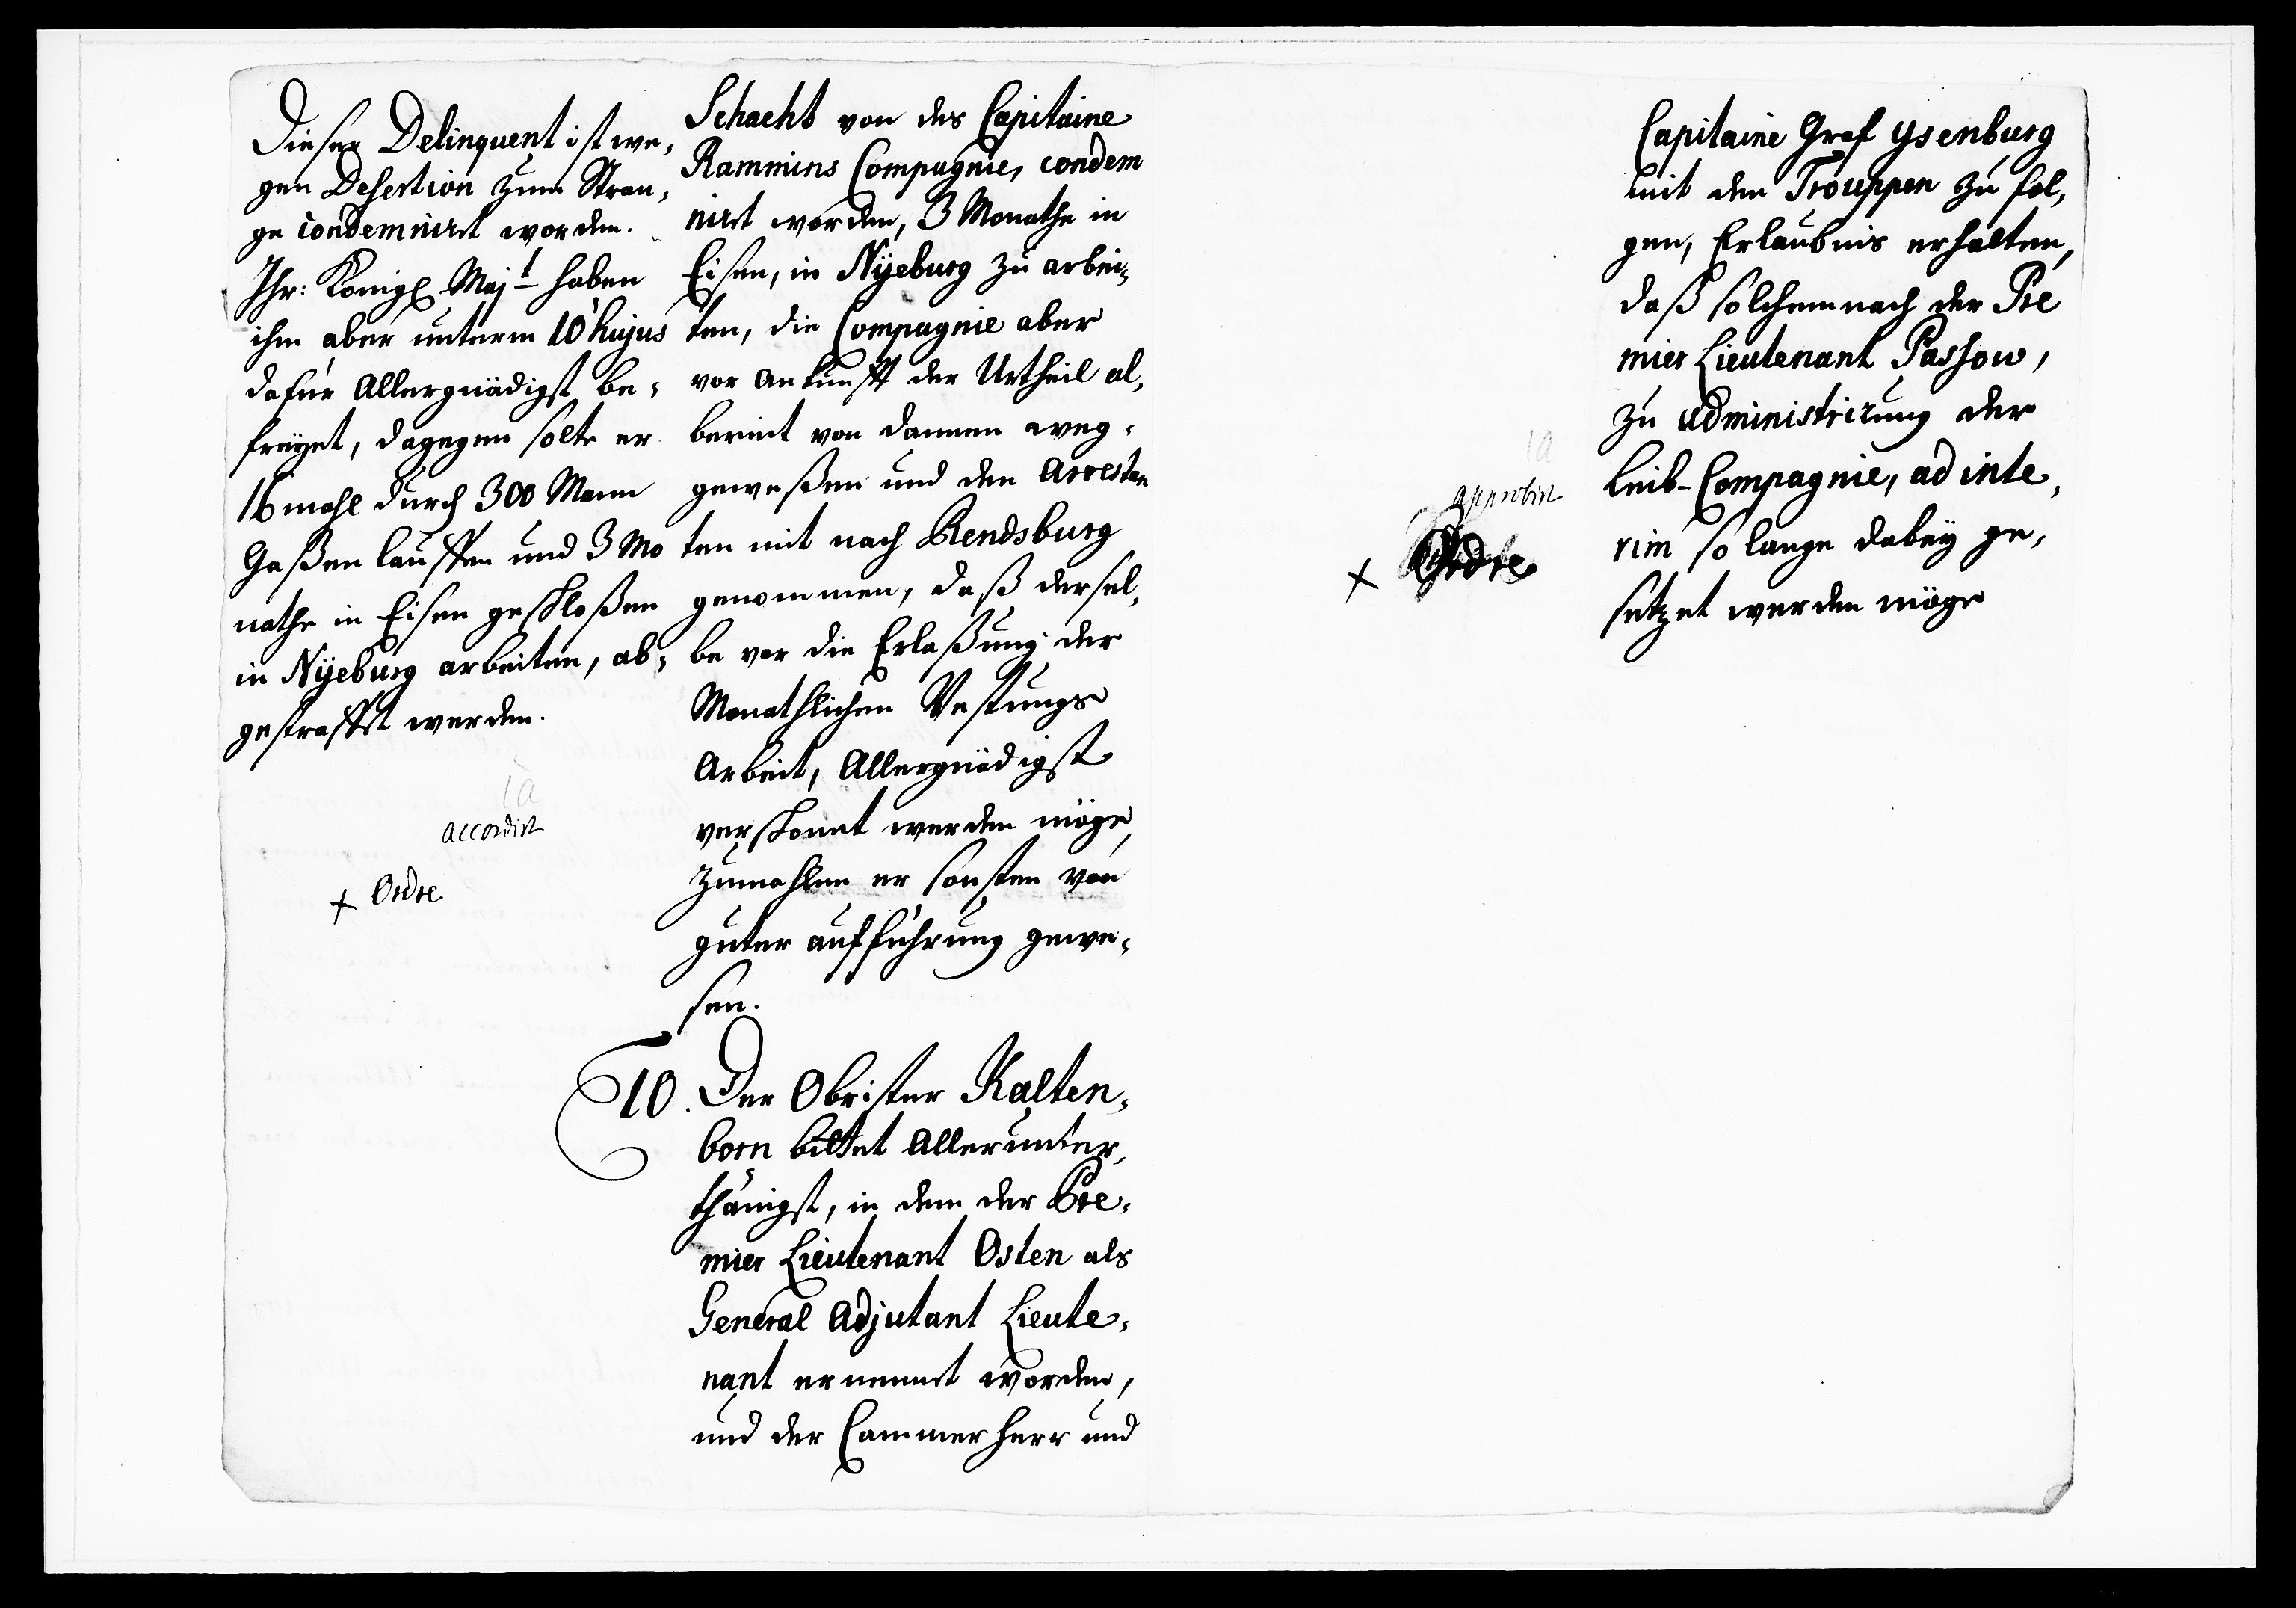 Dieser Delinquent ist we-
gen Desertion zum Stran-
ge condemnirt worden.
Ihr: Königl Majt haben
ihm aber unterm 10 hujus
dafür Allergnädigst be-
freyet, dagegen solte er
16 mahl durch 300 Mann
Gaßen lauffen und 3 Mo
nathe in Eisen geschloßen
in Nyeburg arbeiten, ab-
gestrafft werden.
ia
accordirt
x Ordre
Schacht von des Capitaine
Rammins Compagnie, condem
nirt worden, 3 Monathe in
Eisen, in Nyeburg zu arbei-
ten, die Compagnie aber
vor Ankunfft der Urtheil al-
bereit von dannen weg-
geweßen und den Arrestan
ten mit nach Rendsburg
genommen, daß dersel-
be vor die Erlaßung der
Monathlichen Vestungs
Arbeit, Allergnädigst
verschonet werden möge,
zumahlen er sonsten von
guter aufführung gewe-
sen.
10. Der Obrister Kalten-
born bittet Allerunter-
thänigst, in dem der Pre-
mier Lieutenant Osten als
General Adjutant Lieute-
nant ernennet worden,
und der Cammerherr und
Capitaine Graf Ysenburg
mit den Trouppen zu fol-
gen, Erlaubnis erhalten,
daß solchemnach der Pre
mier Lieutenant Passow,
zu Administrirung der
Leib-Compagnie, ad inte-
rim so lange dabey ge-
setzet werden möge
ia
approbirt
x Ordre